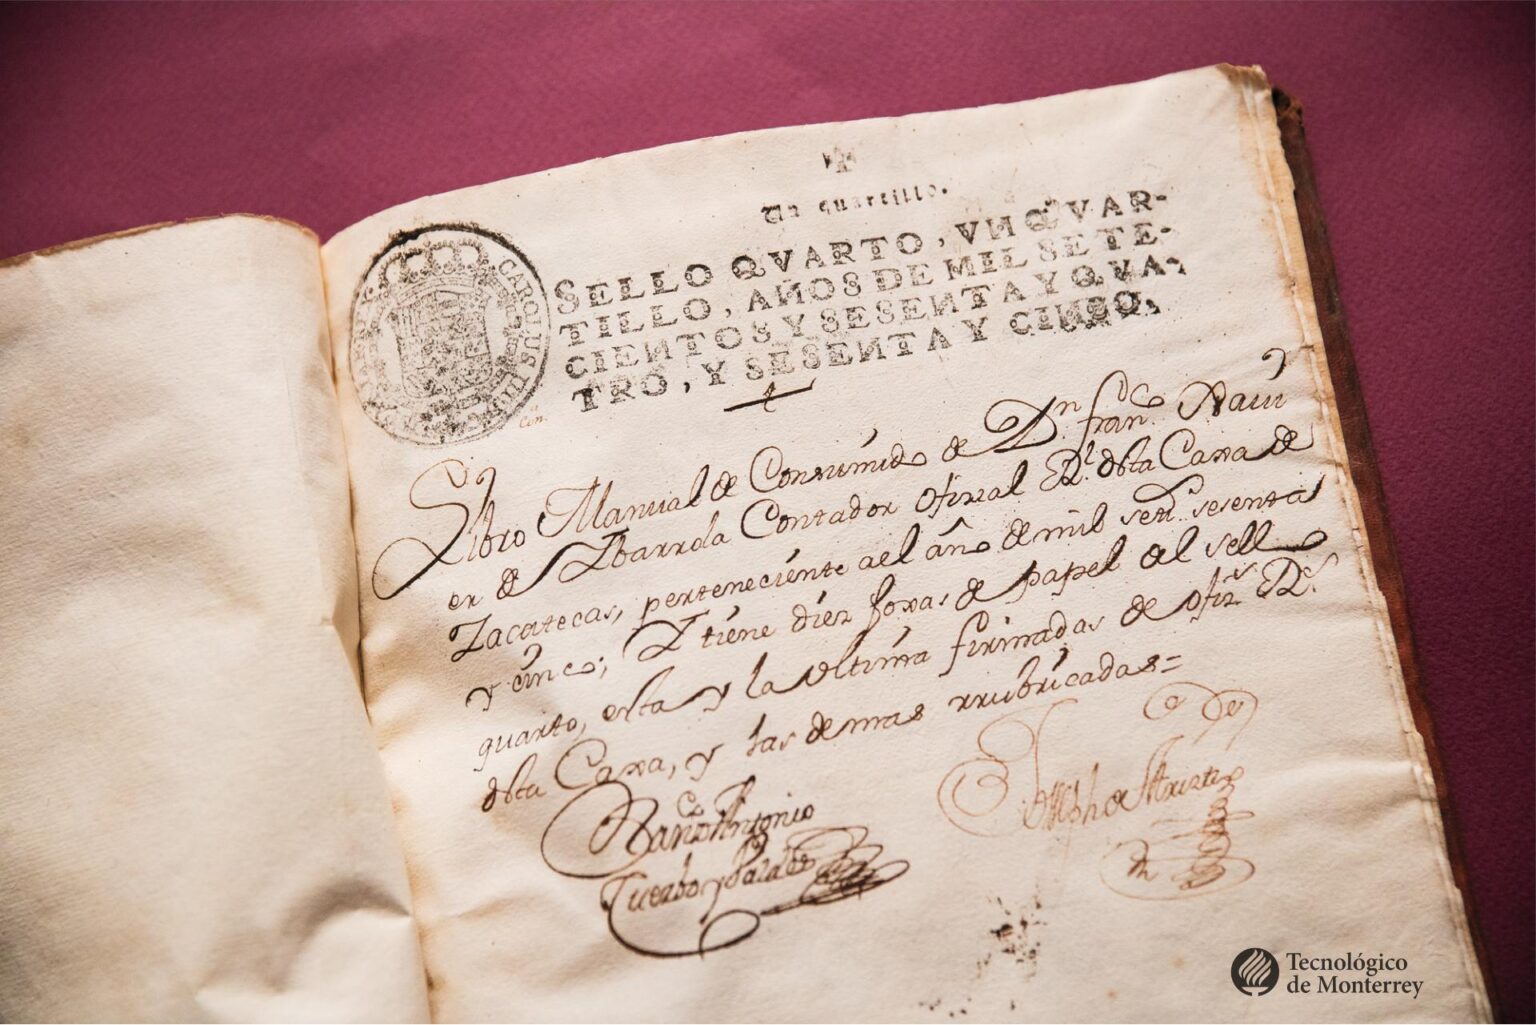 Un quartillo.
SELLO QVARTO, VN QVAR-
TILLO, AÑOS DE MIL SETE-
CIENTOS Y SESENTA Y QVA-
TRO, Y SESENTA Y CINCO.
CAROLUS III
Libro Manual de Consumido de Dn. franco. Xavi
er de Ibarrola Contador ofizial Rl. desta Caxa de
Zacatecas, perteneciente a el año de mil setts. sesenta
y cinco; Y tiene diez foxas de papel del sello
quarto, esta y la ultima firmadas de ofizs. Rs.
desta Caxa, y las demas rrubricadas=
Antonio
Cuerbo y
Tecnológico
de Monterrey